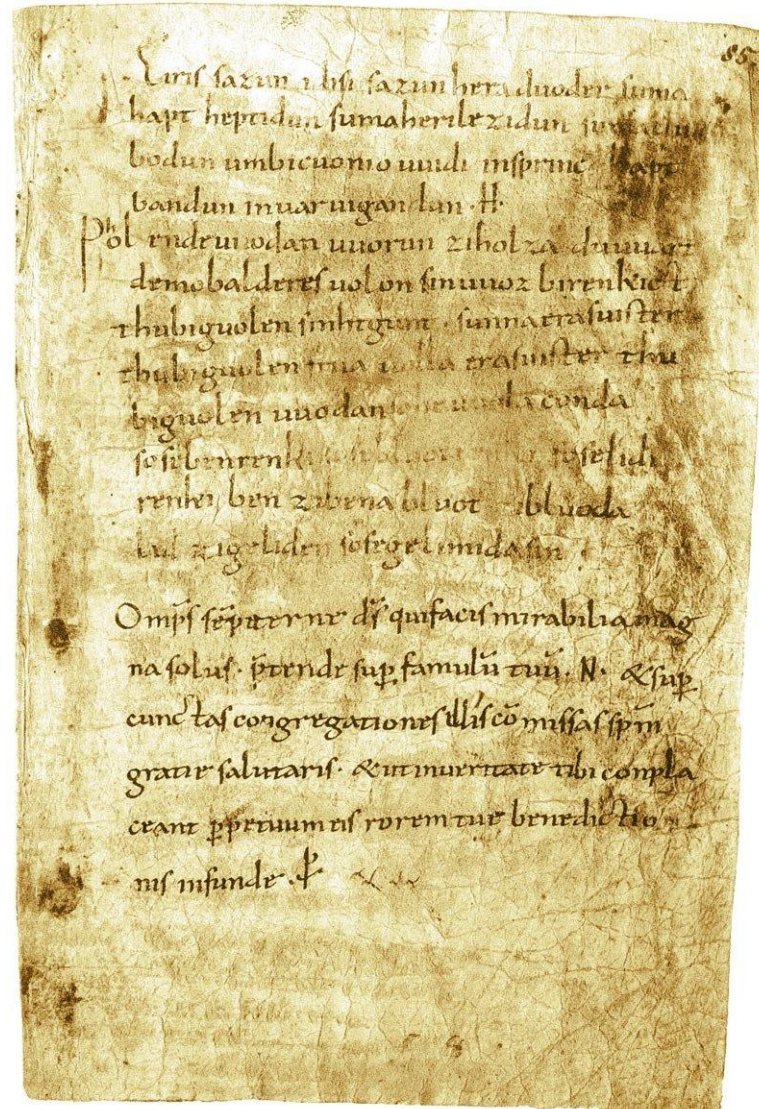 85
Eiris sazun idisi sazun hera duoder suma
hapt heptidun sumaherilezidun sumaclubo
bodun umbicuonio uuidi insprinc hapt
bandun inuar uigandun · H ·
Phol endeuuodan uuorun ziholza duuuart
demobalderesuolon sinuuoz birenkict
thubiguolen sinhtgunt · sunnaerasuister
thubiguolen friia uolla erasuister thu
biguolen uuodan sohe uuola conda
sosebenrenki sosebluotrenki soselidi
renki ben zibena bluot zibluoda
lid zigeliden sosegelimida sin
Omp̄s sēpiterne d̄s quifacis mirabilia mag
na solus · p̄tende sup̱ famulū tuū · N · &sup̱
cunctas congregationes illis cō missas sp̄m
gratie salutaris · &utinueritate tibi conpla
ceant p̱petuum eis rorem tue benedictio
nis infunde · P